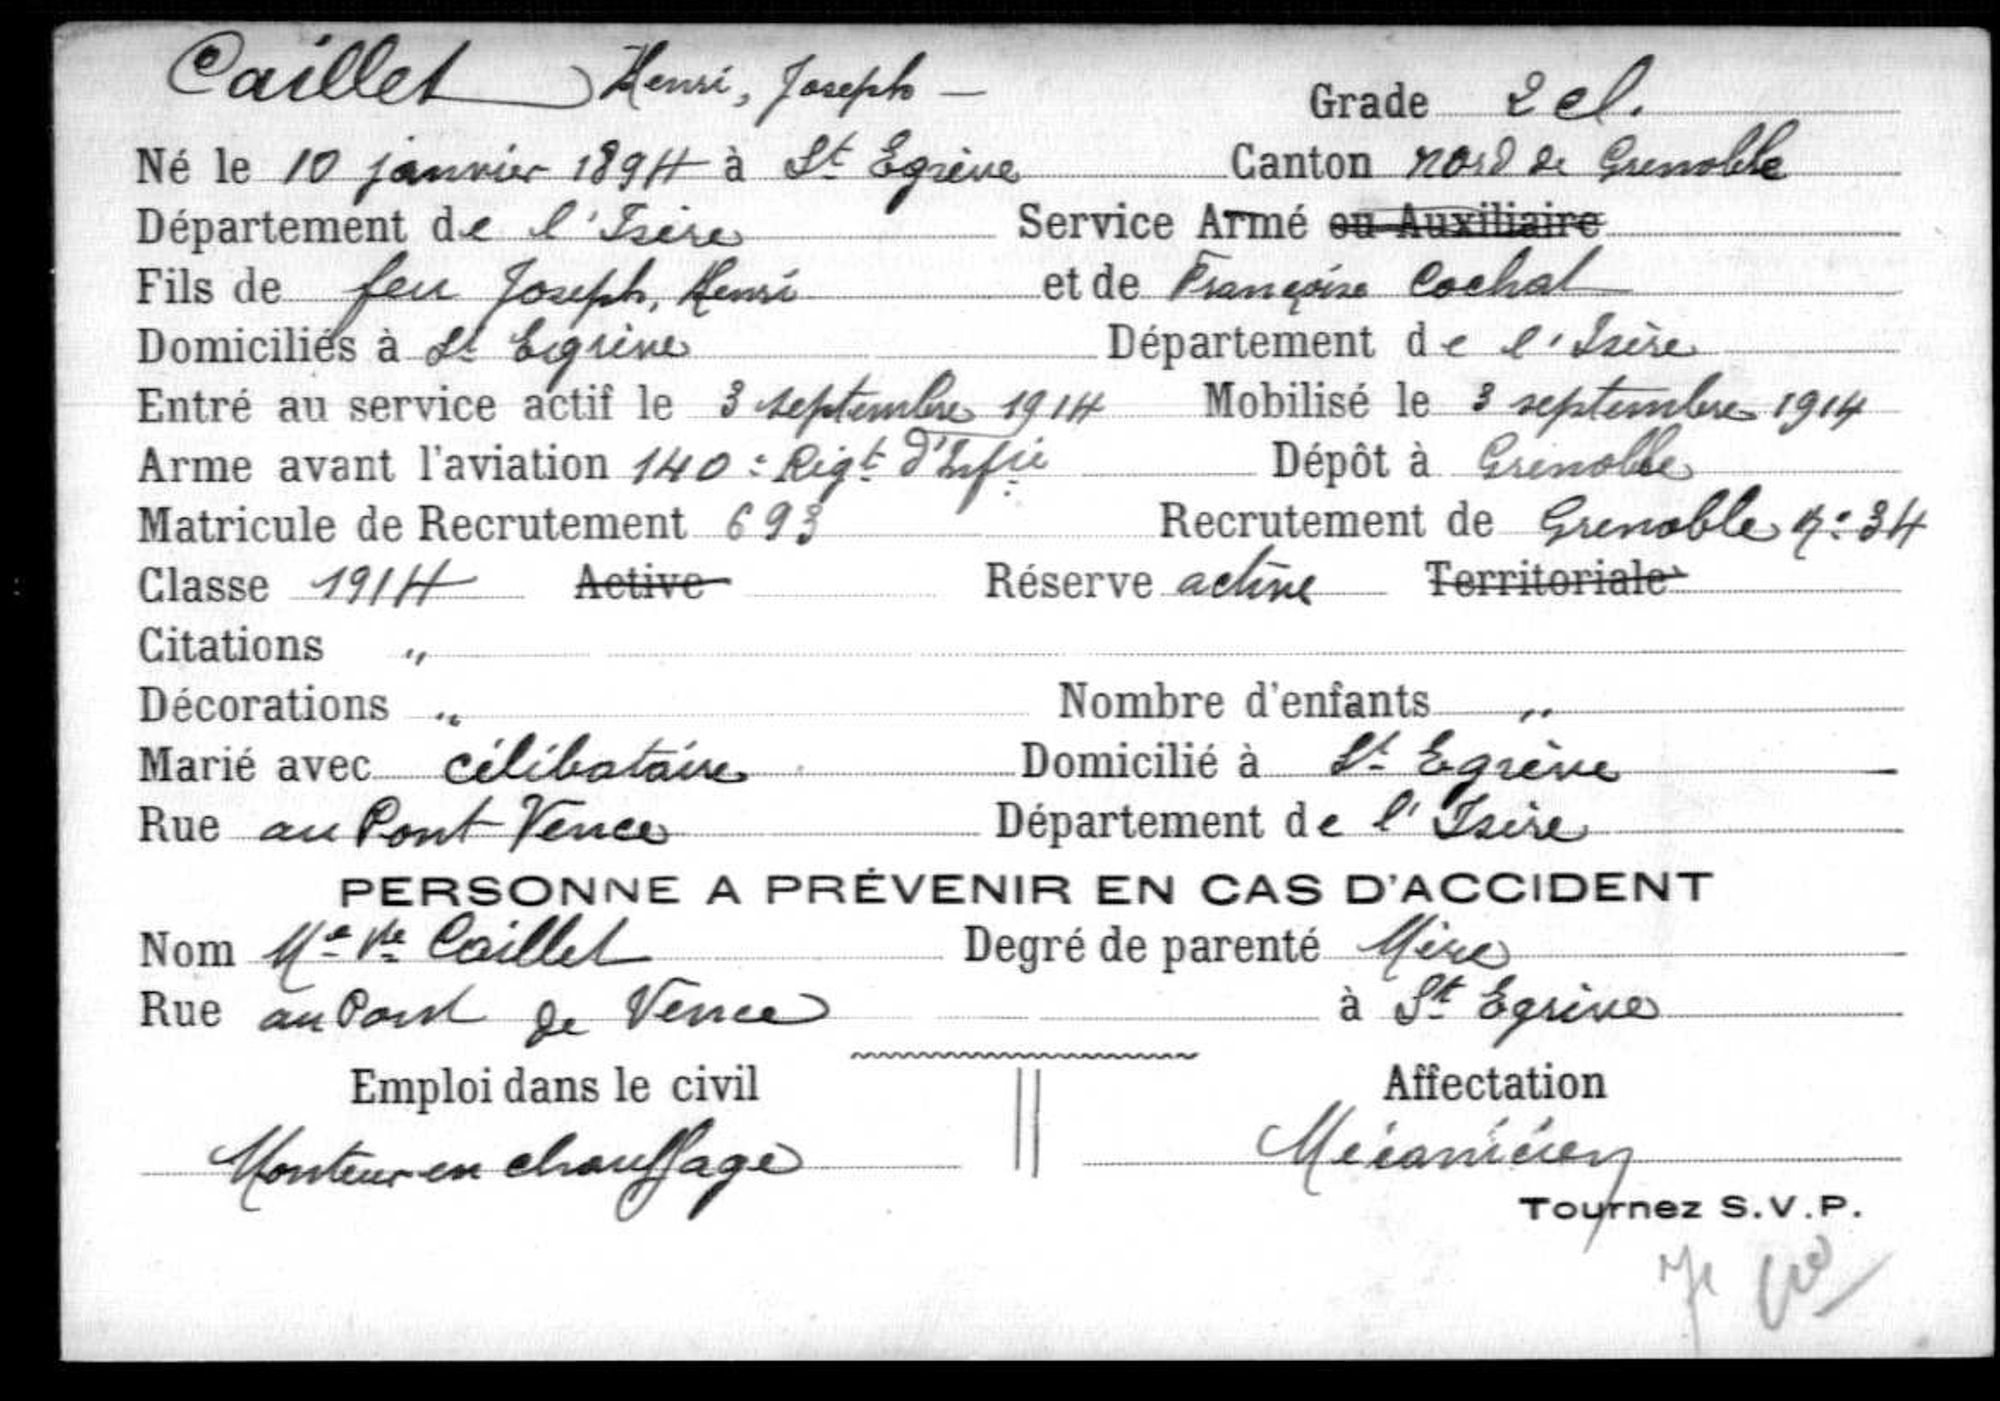 Caillet Henri, Joseph — Grade 2 cl.
Né le 10 janvier 1894 à St Egrève Canton nord de Grenoble
Département de l'Isère Service Armé ou Auxiliaire
Fils de feu Joseph, Henri et de Françoise Cochat
Domiciliés à St Egrève Département de l'Isère
Entré au service actif le 3 septembre 1914 Mobilisé le 3 septembre 1914
Arme avant l'aviation 140e Rigt d'Infie Dépôt à Grenoble
Matricule de Recrutement 693 Recrutement de Grenoble No 34
Classe 1914 Active Réserve active Territoriale
Citations "
Décorations " Nombre d'enfants "
Marié avec célibataire Domicilié à St Egrève
Rue au Pont Vence Département de l'Isère
PERSONNE A PRÉVENIR EN CAS D'ACCIDENT
Nom Me Ve Caillet Degré de parenté Mère
Rue au Pont de Vence à St Egrève
Emploi dans le civil Affectation
Monteur en chauffage Mécanicien
Tournez S.V.P.